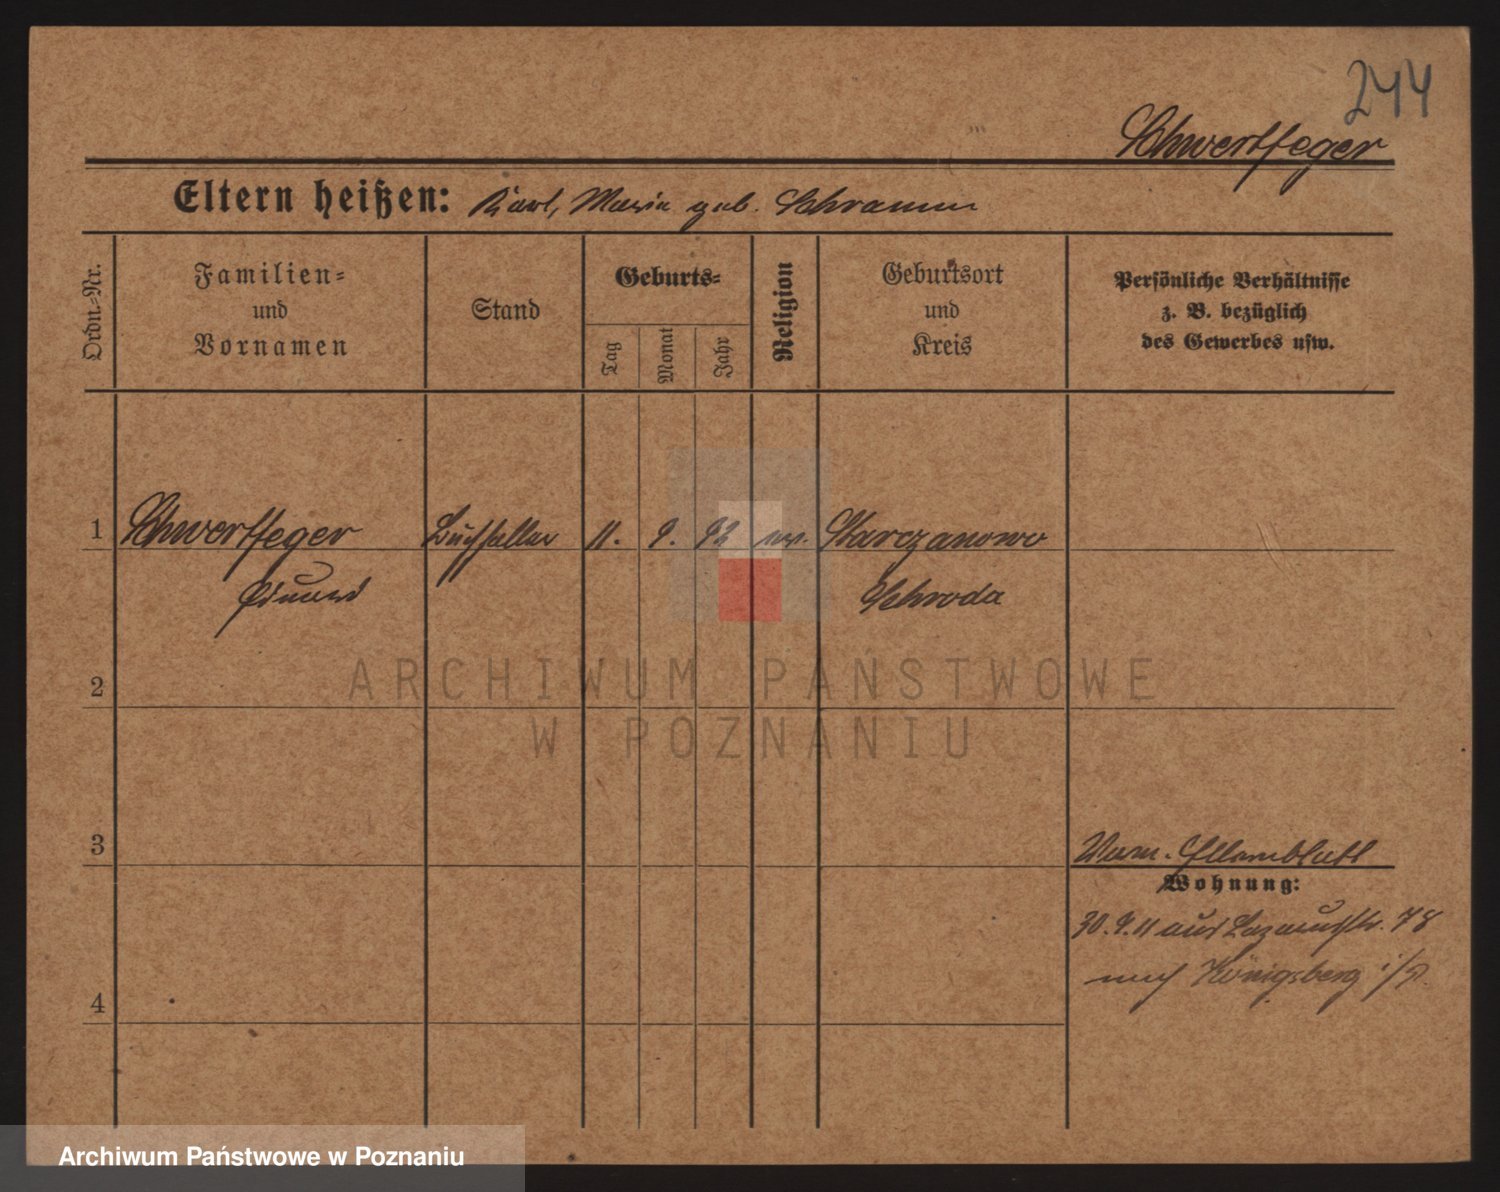 244
Schwertfeger
Eltern heißen: Karl, Maria geb. Schramm
Ordn.-Nr.
Familien-
und
Vornamen
Stand
Geburts-
Tag
Monat
Jahr
Religion
Geburtsort
und
Kreis
Persönliche Verhältnisse
z. B. bezüglich
des Gewerbes usw.
1 Schwertfeger Buchhalter 11. 9. 92 ev. Starczanowo
Eduard Schroda
2
ARCHIWUM PAŃSTWOWE
W POZNANIU
3
Elternblatt
Wohnung:
30. 9. 11 aus 48
nach Königsberg i/P.
4
Archiwum Państwowe w Poznaniu